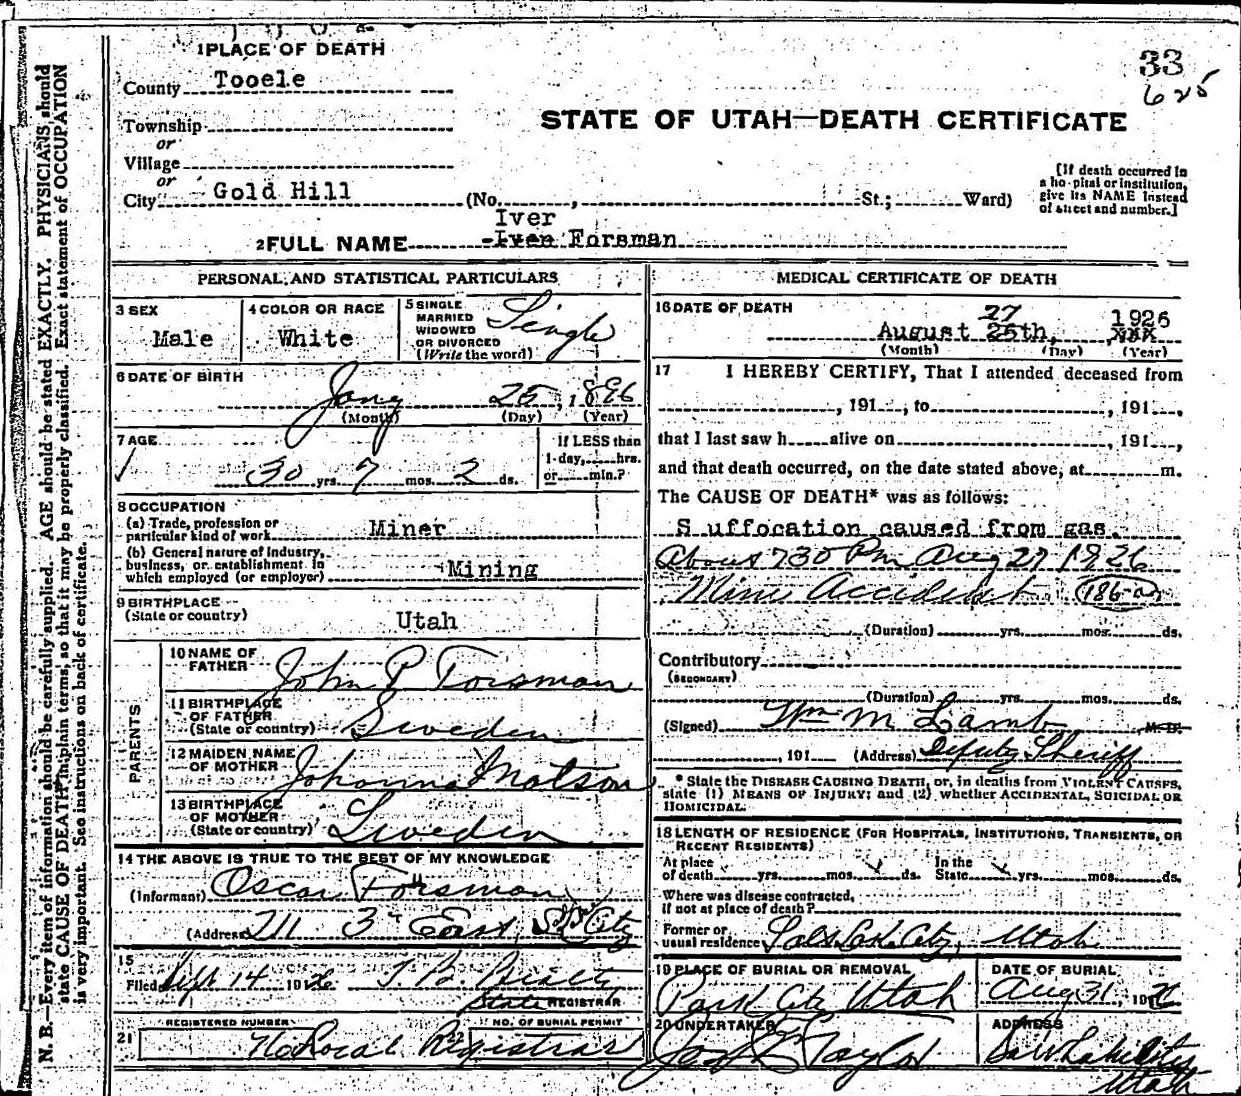 1 PLACE OF DEATH
33
625
County Tooele
Township
or
Village
or
City Gold Hill (No. , St.; Ward)
STATE OF UTAH—DEATH CERTIFICATE
[If death occurred in a hospital or institution, give its NAME instead of street and number.]
Iver
2 FULL NAME Iven Forsman
PERSONAL AND STATISTICAL PARTICULARS
3 SEX
Male
4 COLOR OR RACE
White
5 SINGLE
MARRIED
WIDOWED
OR DIVORCED
(Write the word)
Single
6 DATE OF BIRTH
Jany 25, 1896
(Month) (Day) (Year)
7 AGE
30 yrs. 7 mos. 2 ds.
if LESS than
1-day, hrs.
or min.?
8 OCCUPATION
(a) Trade, profession or
particular kind of work Miner
(b) General nature of industry,
business, or establishment in
which employed (or employer) Mining
9 BIRTHPLACE
(State or country) Utah
PARENTS
10 NAME OF
FATHER John P Forsman
11 BIRTHPLACE
OF FATHER
(State or country) Sweden
12 MAIDEN NAME
OF MOTHER Johanna Matson
13 BIRTHPLACE
OF MOTHER
(State or country) Sweden
14 THE ABOVE IS TRUE TO THE BEST OF MY KNOWLEDGE
(Informant) Oscar Forsman
(Address) 711 3rd East, City
15
Filed Sept 14 1926
State REGISTRAR
21
REGISTERED NUMBER NO. OF BURIAL PERMIT
No Local Registrar
MEDICAL CERTIFICATE OF DEATH
16 DATE OF DEATH
27 1926
August 25th, XXX
(Month) (Day) (Year)
17 I HEREBY CERTIFY, That I attended deceased from
, 191 , to , 191 ,
that I last saw h alive on , 191 ,
and that death occurred, on the date stated above, at m.
The CAUSE OF DEATH* was as follows:
S uffocation caused from gas.
About 730 Pm Aug 27 1926
Mine Accident 186-a
(Duration) yrs. mos. ds.
Contributory
(SECONDARY)
(Duration) yrs. mos. ds.
(Signed) Wm M Lamb M. D.
, 191 (Address) Deputy Sheriff
* State the DISEASE CAUSING DEATH, or, in deaths from VIOLENT CAUSES,
state (1) MEANS OF INJURY; and (2) whether ACCIDENTAL, SUICIDAL OR
HOMICIDAL.
18 LENGTH OF RESIDENCE (FOR HOSPITALS, INSTITUTIONS, TRANSIENTS, OR
RECENT RESIDENTS)
At place In the
of death yrs. mos. ds. State yrs. mos. ds.
Where was disease contracted,
if not at place of death?
Former or
usual residence Salt Lake City, Utah
19 PLACE OF BURIAL OR REMOVAL
Park City Utah
DATE OF BURIAL
Aug 31 1926
20 UNDERTAKER
Taylor
ADDRESS
Salt Lake City
Utah
N. B.—Every item of information should be carefully supplied. AGE should be stated EXACTLY. PHYSICIANS should
state CAUSE OF DEATH in plain terms, so that it may be properly classified. Exact statement of OCCUPATION
is very important. See instructions on back of certificate.